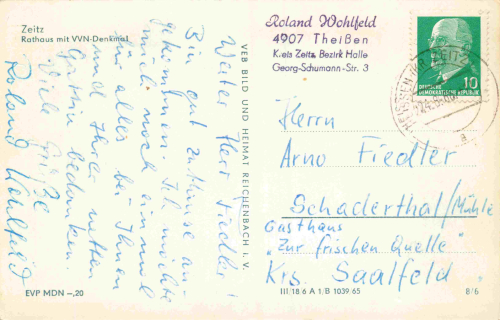 Zeitz
Rathaus mit VVN-Denkmal
Werter Herr Fiedler!
Bin gut zu Hause an-
gekommen. Ich möchte
mich noch einmal
für alles bei Ihnen
und Ihrer netten
Gattin bedanken.
Viele Grüße
Roland Wohlfeld
EVP MDN –,20
VEB BILD UND HEIMAT REICHENBACH I. V.
Roland Wohlfeld
4907 Theißen
Kreis Zeitz, Bezirk Halle
Georg-Schumann-Str. 3
10
DEUTSCHE
DEMOKRATISCHE REPUBLIK
Herrn
Arno Fiedler
Schaderthal/Mühle
Gasthaus
„Zur frischen Quelle"
Krs. Saalfeld
III 18 6 A 1/B 1039.65
8/6